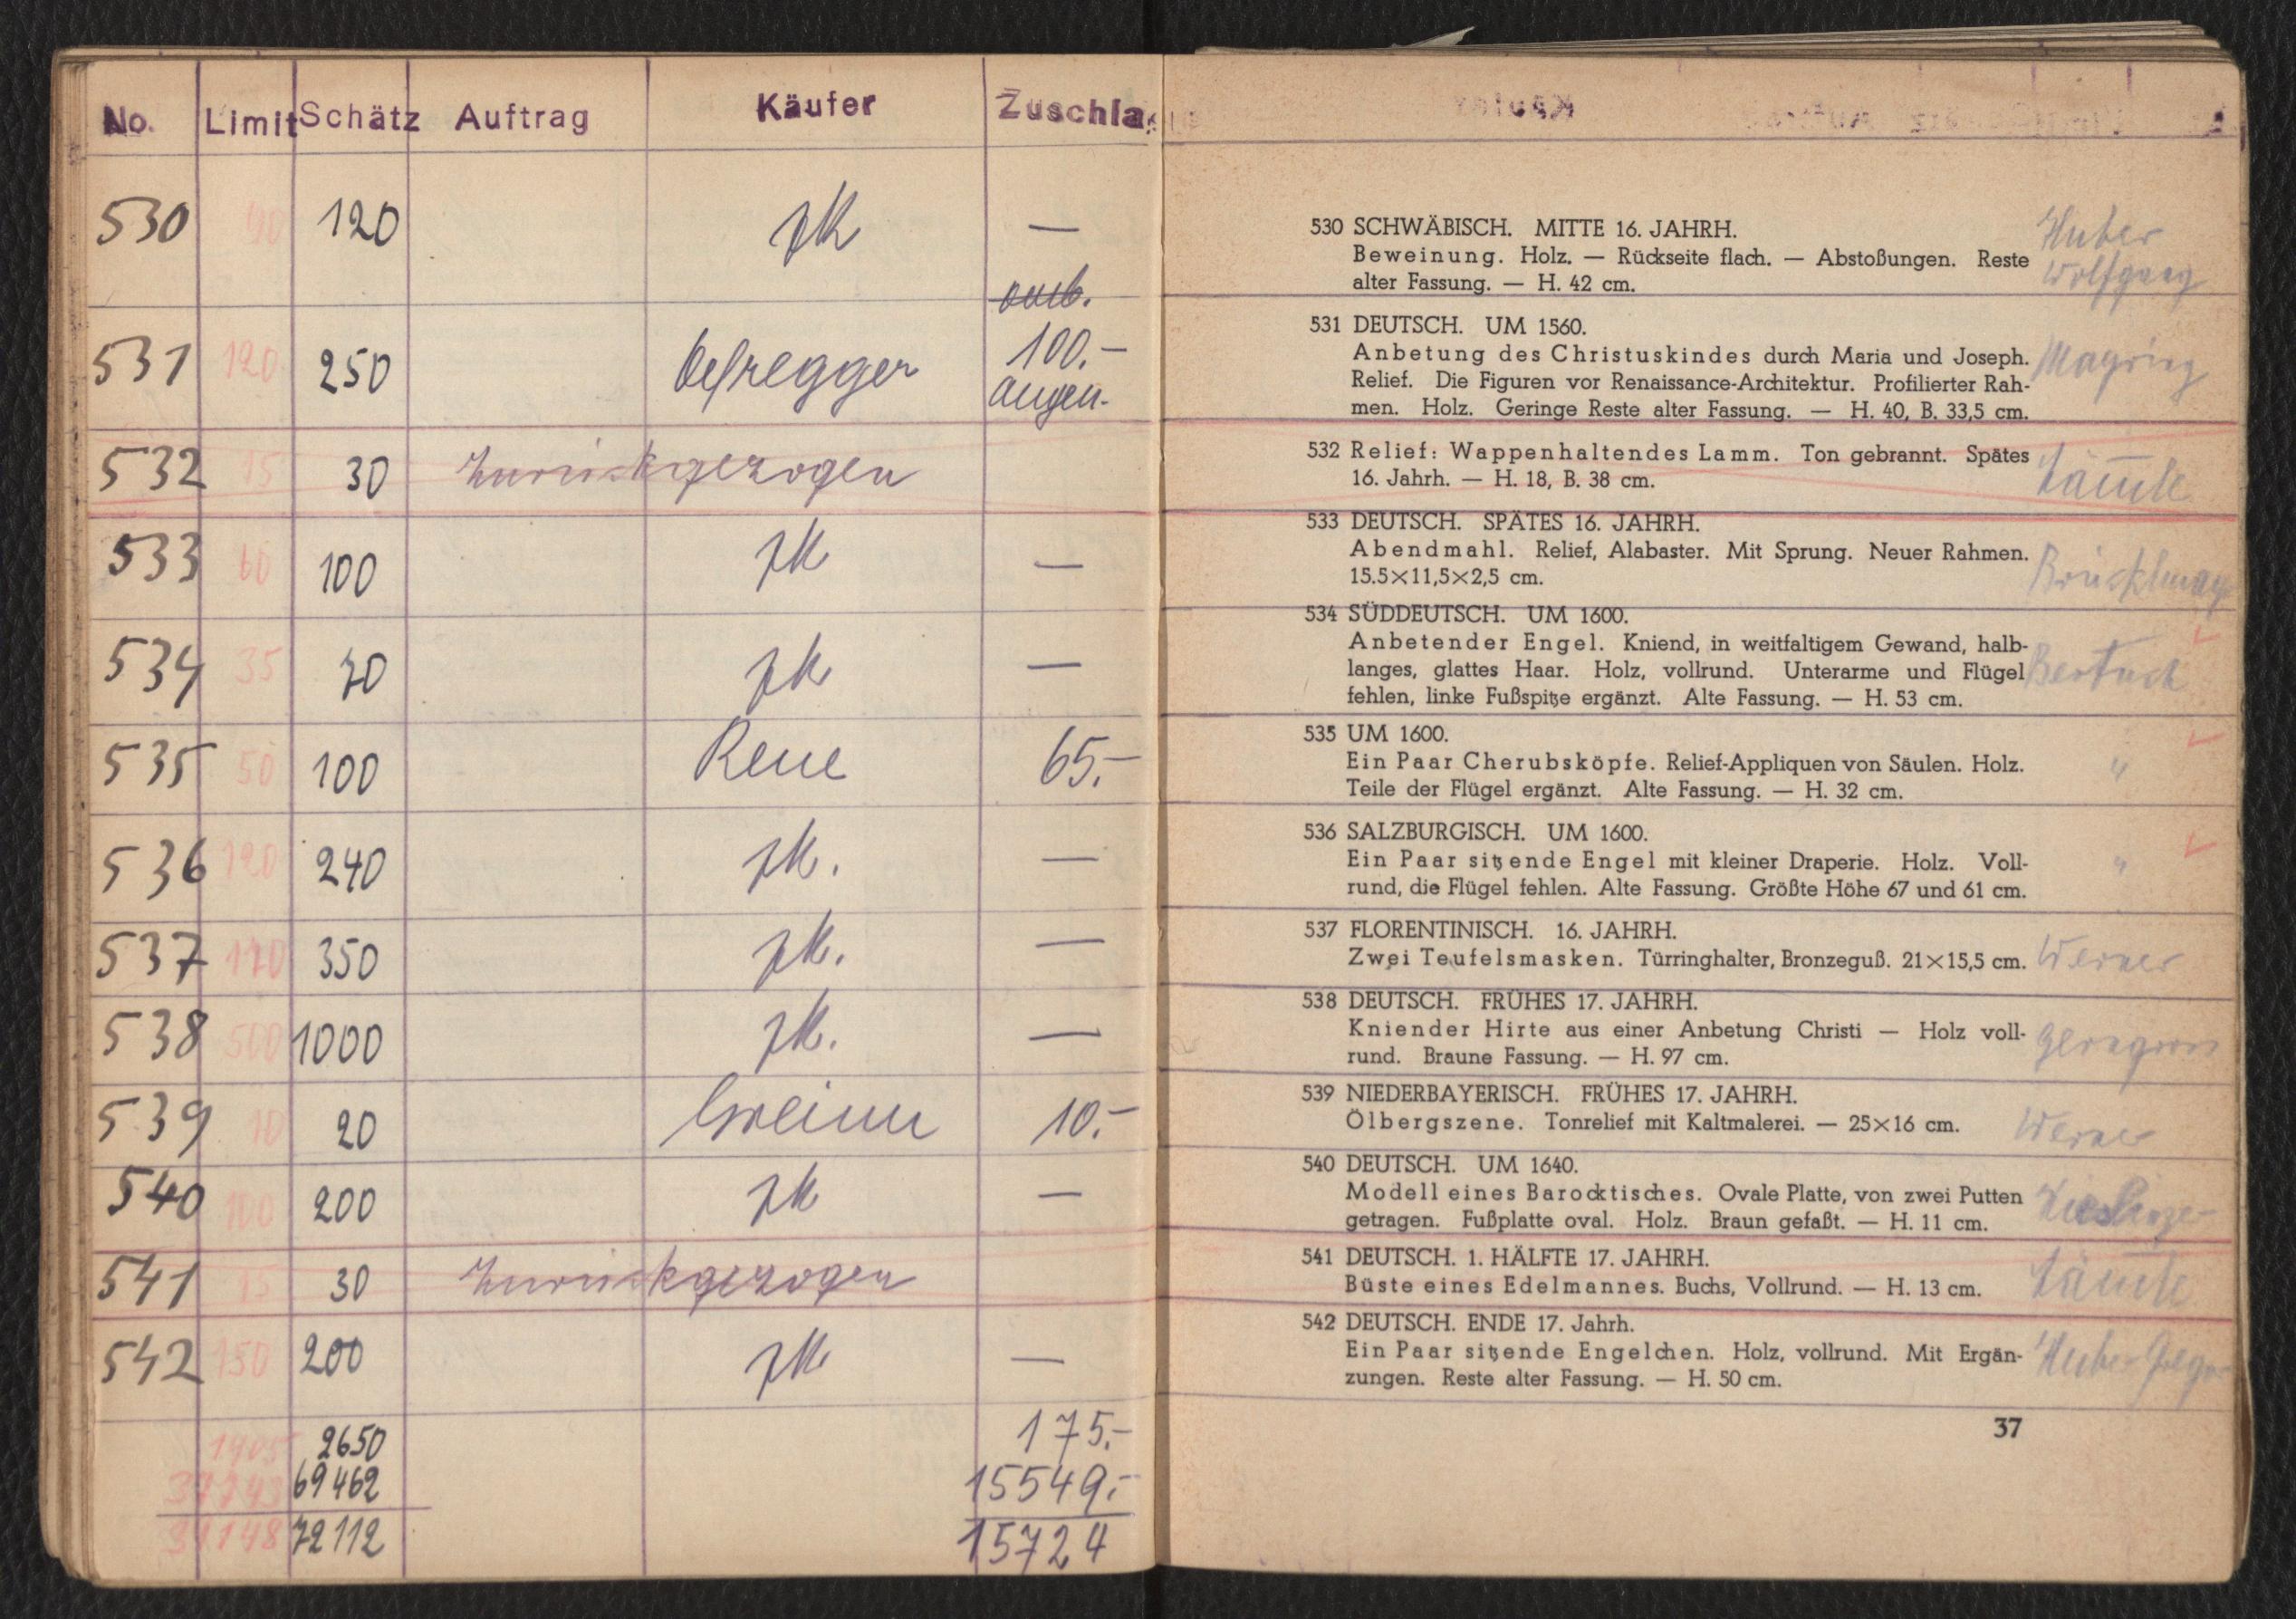 No. Limit Schätz Auftrag Käufer Zuschla
530 120 zk —
531 120 250 100.-
532 15 30 Zurückgezogen
533 60 100 zk —
534 35 70 zk —
535 50 100 Rene 65.-
536 120 240 zk. —
537 350 zk. —
538 500 1000 zk. —
539 10 20 10.-
540 100 200 zk —
541 15 30 Zurückgezogen
542 150 200 zk —
1905 2650 175.-
69462 15549.-
72112 15724
530 SCHWÄBISCH. MITTE 16. JAHRH. Huber
Beweinung. Holz. — Rückseite flach. — Abstoßungen. Reste Wolfgang
alter Fassung. — H. 42 cm.
531 DEUTSCH. UM 1560.
Anbetung des Christuskindes durch Maria und Joseph.
Relief. Die Figuren vor Renaissance-Architektur. Profilierter Rah-
men. Holz. Geringe Reste alter Fassung. — H. 40, B. 33,5 cm.
532 Relief: Wappenhaltendes Lamm. Ton gebrannt. Spätes
16. Jahrh. — H. 18, B. 38 cm.
533 DEUTSCH. SPÄTES 16. JAHRH.
Abendmahl. Relief, Alabaster. Mit Sprung. Neuer Rahmen.
15.5×11,5×2,5 cm.
534 SÜDDEUTSCH. UM 1600.
Anbetender Engel. Kniend, in weitfaltigem Gewand, halb-
langes, glattes Haar. Holz, vollrund. Unterarme und Flügel
fehlen, linke Fußspitze ergänzt. Alte Fassung. — H. 53 cm.
535 UM 1600.
Ein Paar Cherubsköpfe. Relief-Appliquen von Säulen. Holz. "
Teile der Flügel ergänzt. Alte Fassung. — H. 32 cm.
536 SALZBURGISCH. UM 1600.
Ein Paar sitzende Engel mit kleiner Draperie. Holz. Voll- "
rund, die Flügel fehlen. Alte Fassung. Größte Höhe 67 und 61 cm.
537 FLORENTINISCH. 16. JAHRH.
Zwei Teufelsmasken. Türringhalter, Bronzeguß. 21×15,5 cm. Werner
538 DEUTSCH. FRÜHES 17. JAHRH.
Kniender Hirte aus einer Anbetung Christi — Holz voll-
rund. Braune Fassung. — H. 97 cm.
539 NIEDERBAYERISCH. FRÜHES 17. JAHRH.
Ölbergszene. Tonrelief mit Kaltmalerei. — 25×16 cm. Werner
540 DEUTSCH. UM 1640.
Modell eines Barocktisches. Ovale Platte, von zwei Putten
getragen. Fußplatte oval. Holz. Braun gefaßt. — H. 11 cm.
541 DEUTSCH. 1. HÄLFTE 17. JAHRH.
Büste eines Edelmannes. Buchs, Vollrund. — H. 13 cm.
542 DEUTSCH. ENDE 17. Jahrh.
Ein Paar sitzende Engelchen. Holz, vollrund. Mit Ergän-
zungen. Reste alter Fassung. — H. 50 cm.
37